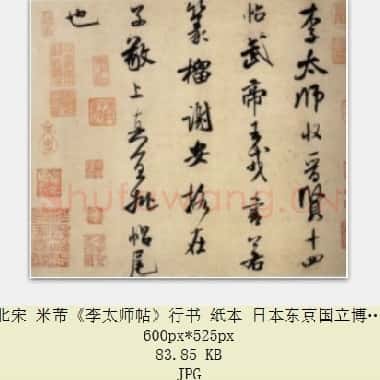 李太師收晉賢十四
帖武帝王戎書若
篆籀謝安格在
子敬上真宜批帖尾
也
北宋 米芾《李太师帖》行书 纸本 日本东京国立博…
600px*525px
83.85 KB
JPG